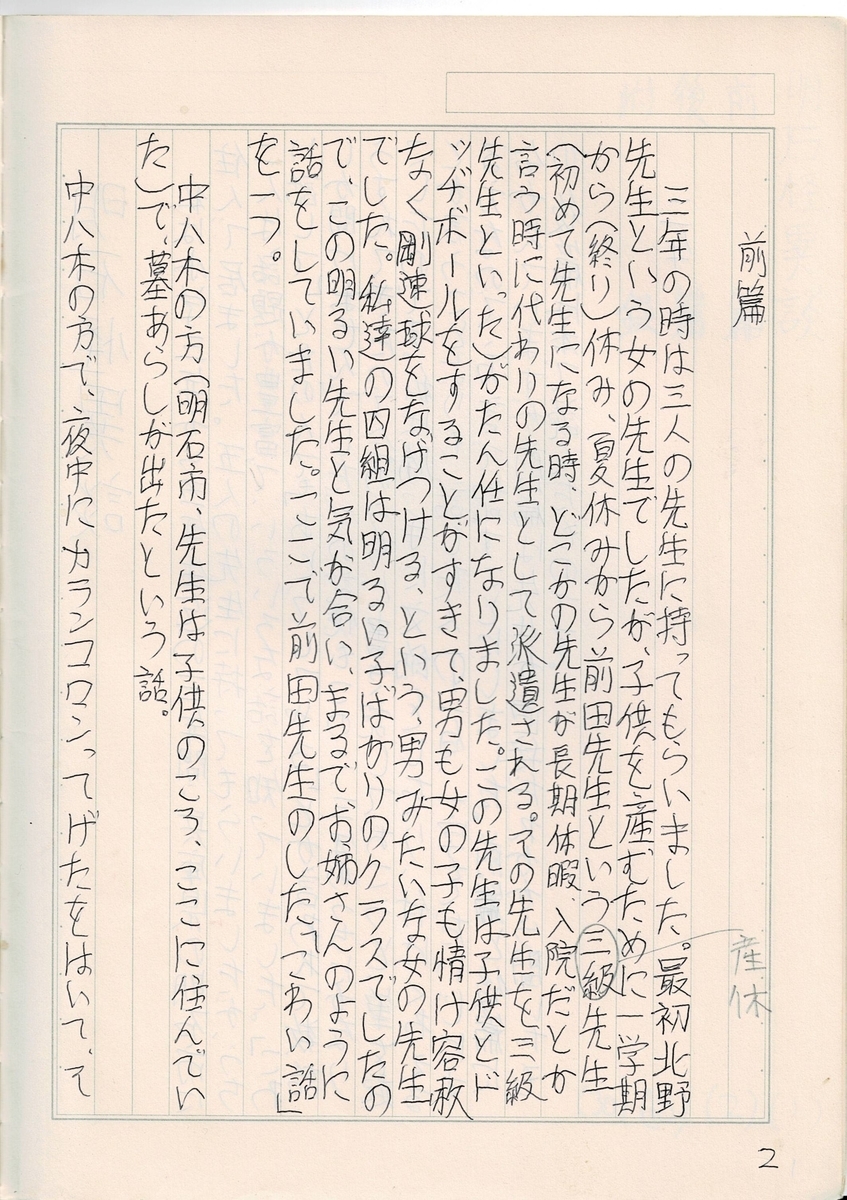 前篇
三年の時は三人の先生に持ってもらいました。最初北野
先生という女の先生でしたが、子供を産むために一学期
から(終り)休み、夏休みから前田先生という三級先生
産休
(初めて先生になる時、どこかの先生が長期休暇、入院だとか
言う時に代わりの先生として派遣される。その先生を三級
先生といった)がたん任になりました。この先生は子供とド
ッヂボールをすることがすきで、男も女の子も情け容赦
なく剛速球をなげつける、という、男みたいな女の先生
でした。私達の四組は明るい子ばかりのクラスでしたの
で、この明るい先生と気が合い、まるでお姉さんのように
話をしていました。ここで前田先生のした「こわい話」
を一つ。
中八木の方(明石市、先生は子供のころ、ここに住んでい
た)で、墓あらしが出たという話。
中八木の方で、夜中にカランコロンってげたをはいて、そ
2